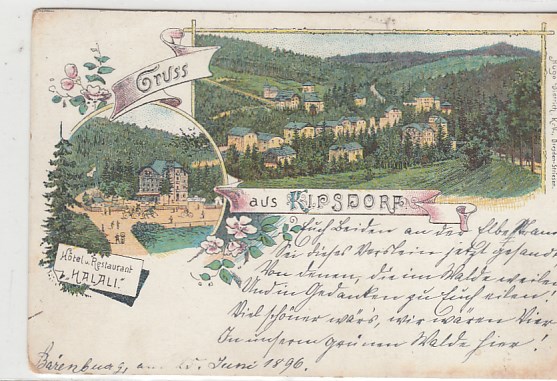 Gruss
aus KIPSDORF
Hôtel u. Restaurant
z. "HALALI".
Euch Beiden an der Elbe
Sei dieses Verslein jetzt gesandt
Von denen, die im Walde weilen
Und in Gedanken zu Euch eilen!
Viel schöner wär's, wir wären Vier
In unserm grünen Walde hier!
Bärenburg, am 15. Juni 1896.
Dresden-Striesen